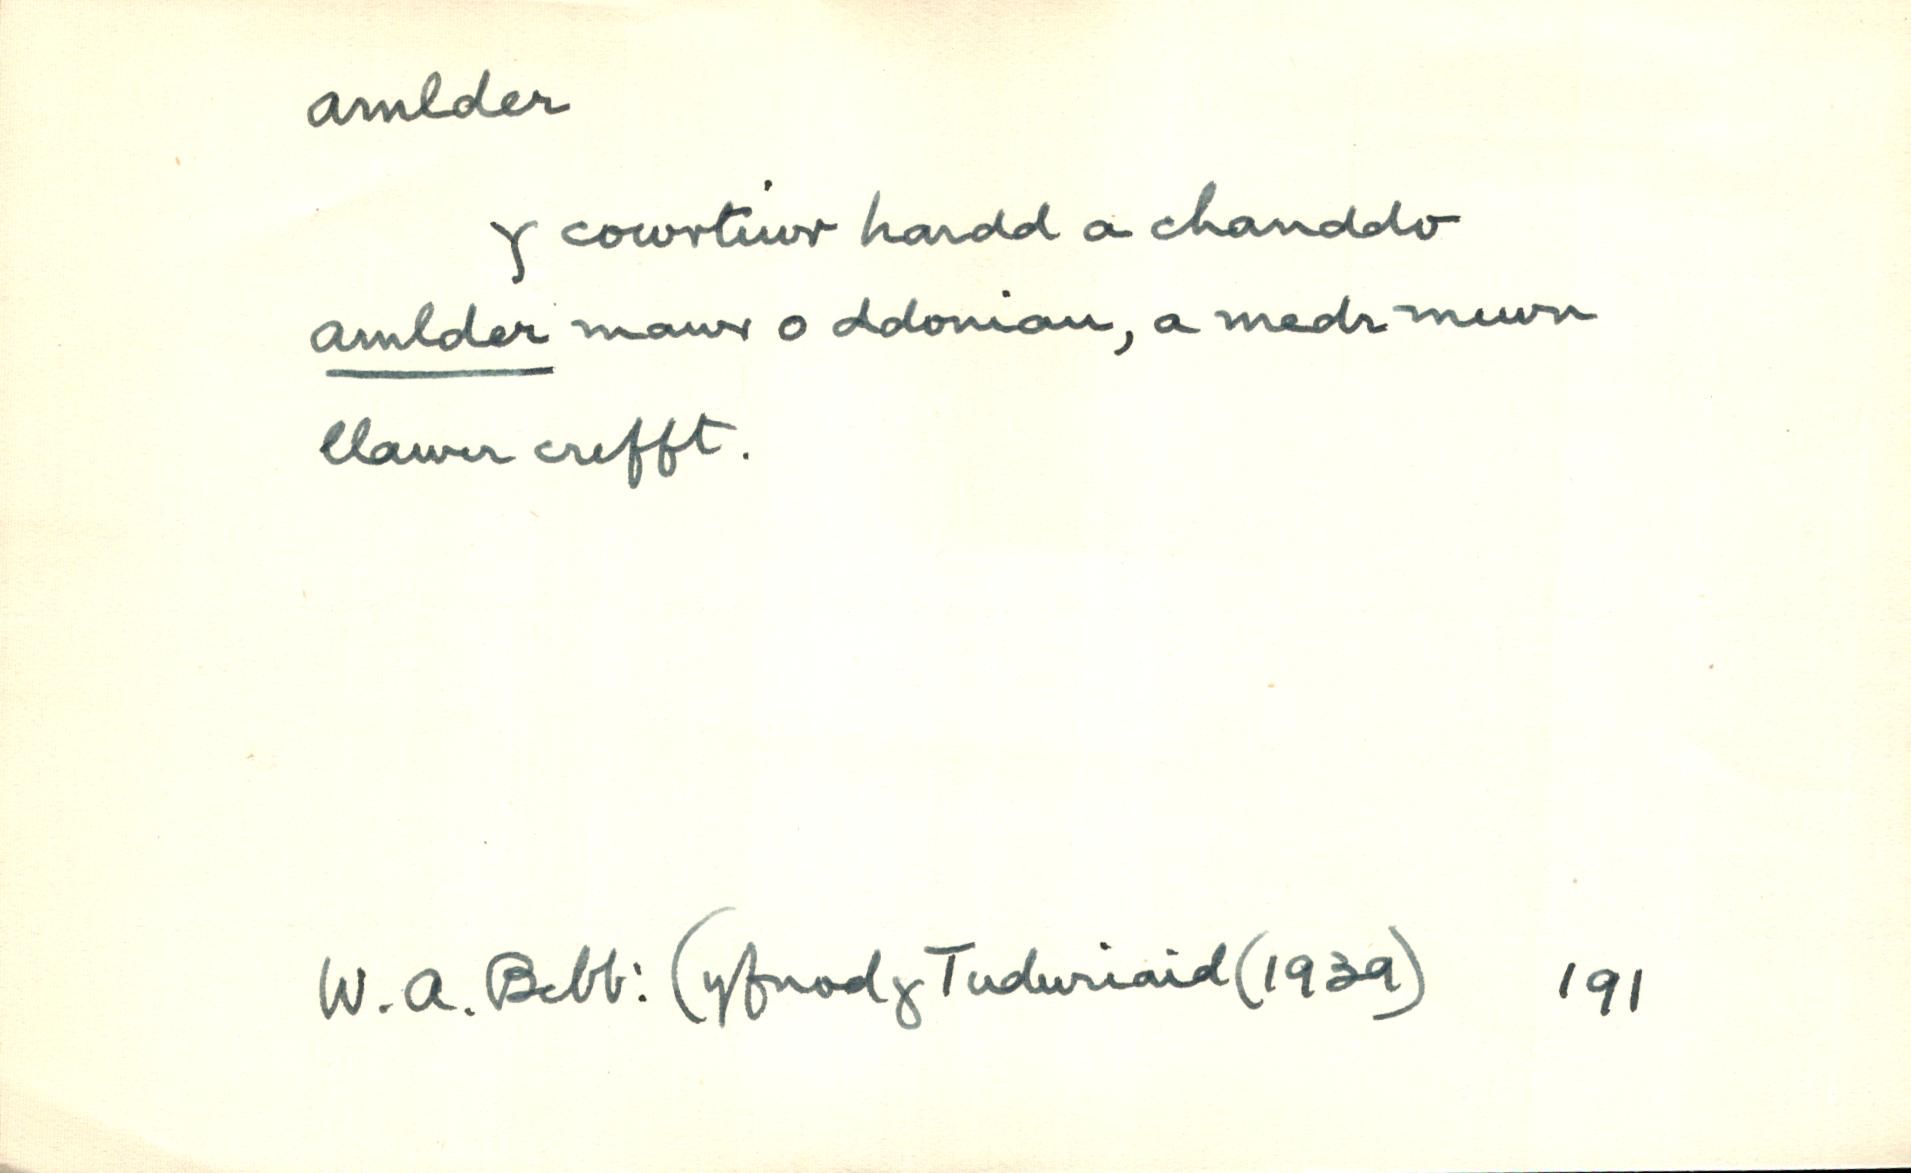 amlder
y cowrtiwr hardd a chanddo
amlder mawr o ddoniau, a medr mewn
llawer crefft.
W. A. Bebb: (Cyfnod y Tuduriaid (1939) 191